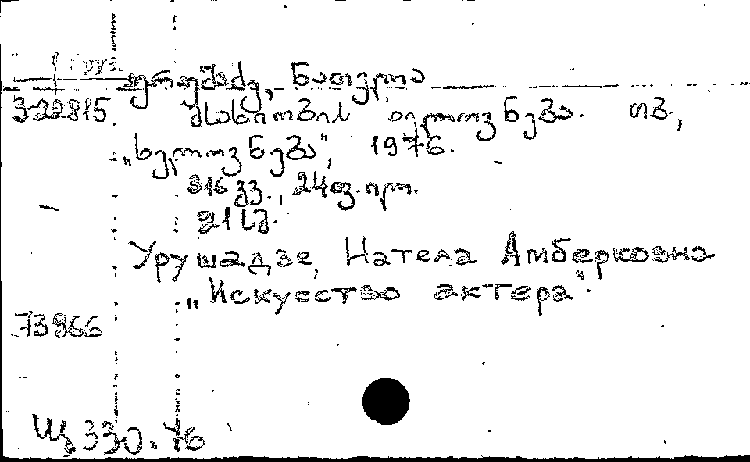 Груз.
ურუშაძე, ნათელა
3-22815 მსახიობის ხელოვნება. თბ.,
„ხელოვნება“, 1976.
316 გვ., 24 ფ. ილ.
21 სმ.
Урушадзе, Натела Амберковна
„Искусство актера“.
73966
Щ 330.76